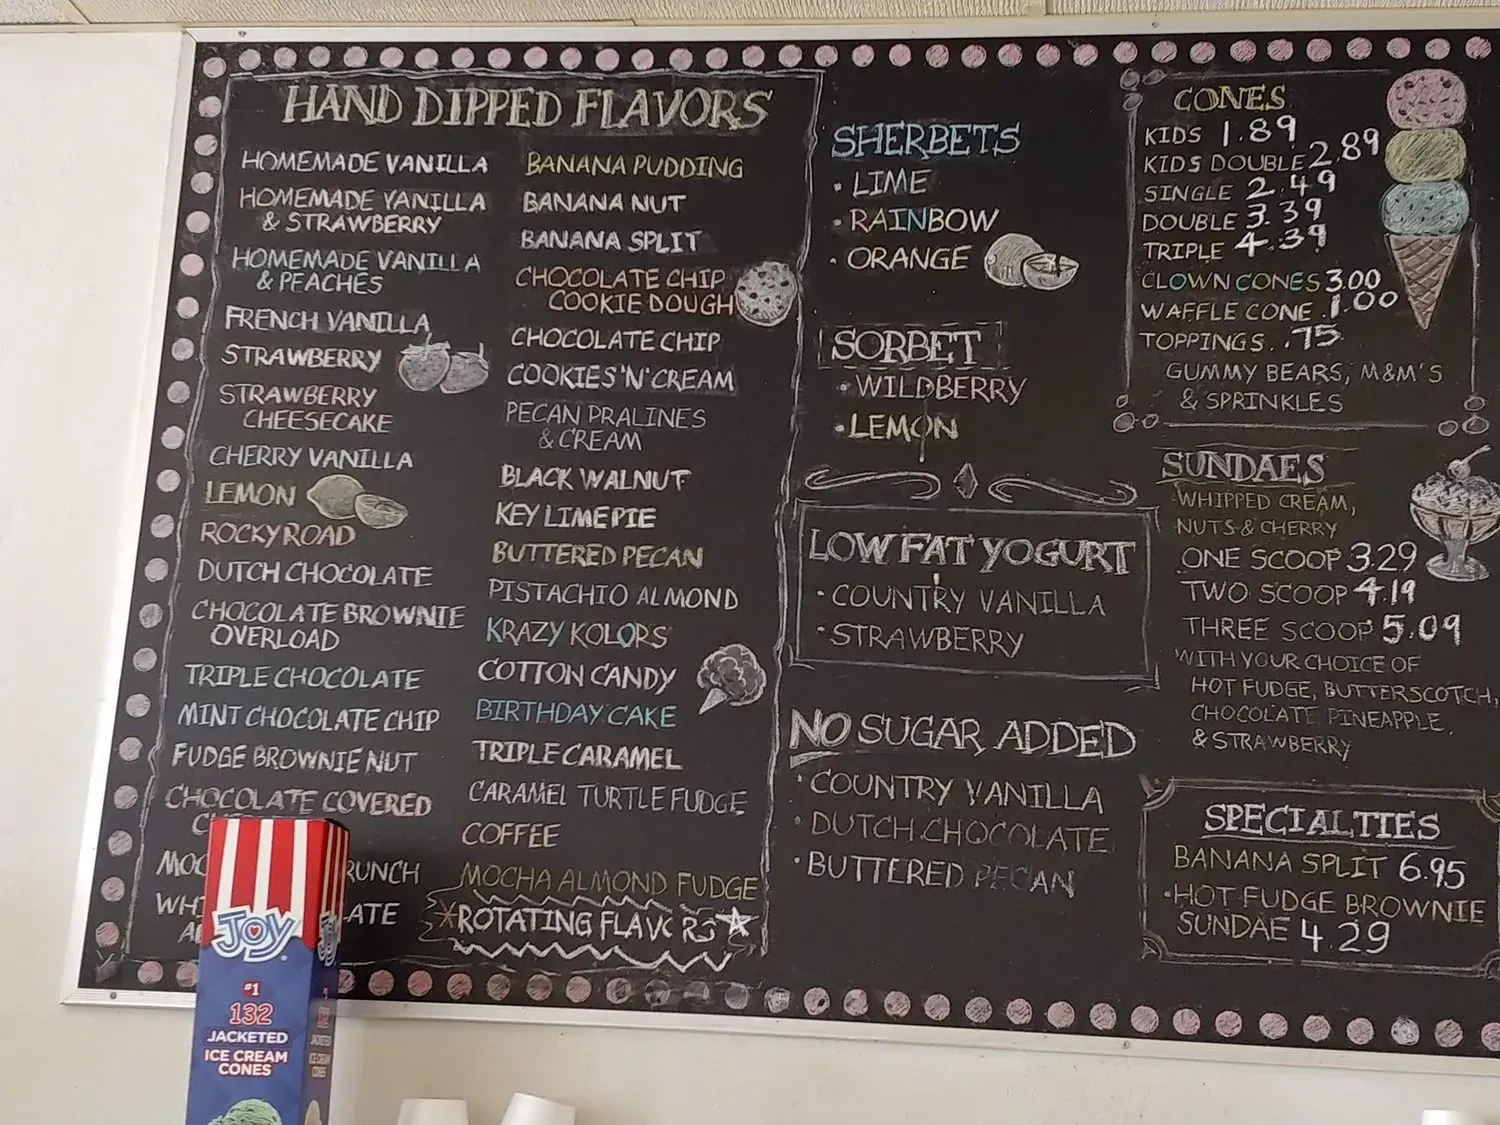 HAND DIPPED FLAVORS
HOMEMADE VANILLA
HOMEMADE VANILLA
& STRAWBERRY
HOMEMADE VANILLA
& PEACHES
FRENCH VANILLA
STRAWBERRY
STRAWBERRY
CHEESECAKE
CHERRY VANILLA
LEMON
ROCKY ROAD
DUTCH CHOCOLATE
CHOCOLATE BROWNIE
OVERLOAD
TRIPLE CHOCOLATE
MINT CHOCOLATE CHIP
FUDGE BROWNIE NUT
CHOCOLATE COVERED
BANANA PUDDING
BANANA NUT
BANANA SPLIT
CHOCOLATE CHIP
COOKIE DOUGH
CHOCOLATE CHIP
COOKIES 'N' CREAM
PECAN PRALINES
& CREAM
BLACK WALNUT
KEY LIME PIE
BUTTERED PECAN
PISTACHIO ALMOND
KRAZY KOLORS
COTTON CANDY
BIRTHDAY CAKE
TRIPLE CARAMEL
CARAMEL TURTLE FUDGE
COFFEE
MOCHA ALMOND FUDGE
*ROTATING FLAVORS
SHERBETS
• LIME
• RAINBOW
• ORANGE
SORBET
• WILDBERRY
• LEMON
LOW FAT YOGURT
• COUNTRY VANILLA
• STRAWBERRY
NO SUGAR ADDED
• COUNTRY VANILLA
• DUTCH CHOCOLATE
• BUTTERED PECAN
CONES
KIDS 1.89
KIDS DOUBLE 2.89
SINGLE 2.49
DOUBLE 3.39
TRIPLE 4.39
CLOWN CONES 3.00
WAFFLE CONE .1.00
TOPPINGS. .75
GUMMY BEARS, M&M'S
& SPRINKLES
SUNDAES
WHIPPED CREAM,
NUTS & CHERRY
ONE SCOOP 3.29
TWO SCOOP 4.19
THREE SCOOP 5.09
WITH YOUR CHOICE OF
HOT FUDGE, BUTTERSCOTCH,
CHOCOLATE, PINEAPPLE,
& STRAWBERRY
SPECIALTIES
BANANA SPLIT 6.95
• HOT FUDGE BROWNIE
SUNDAE 4.29
JOY
#1
132
JACKETED
ICE CREAM
CONES